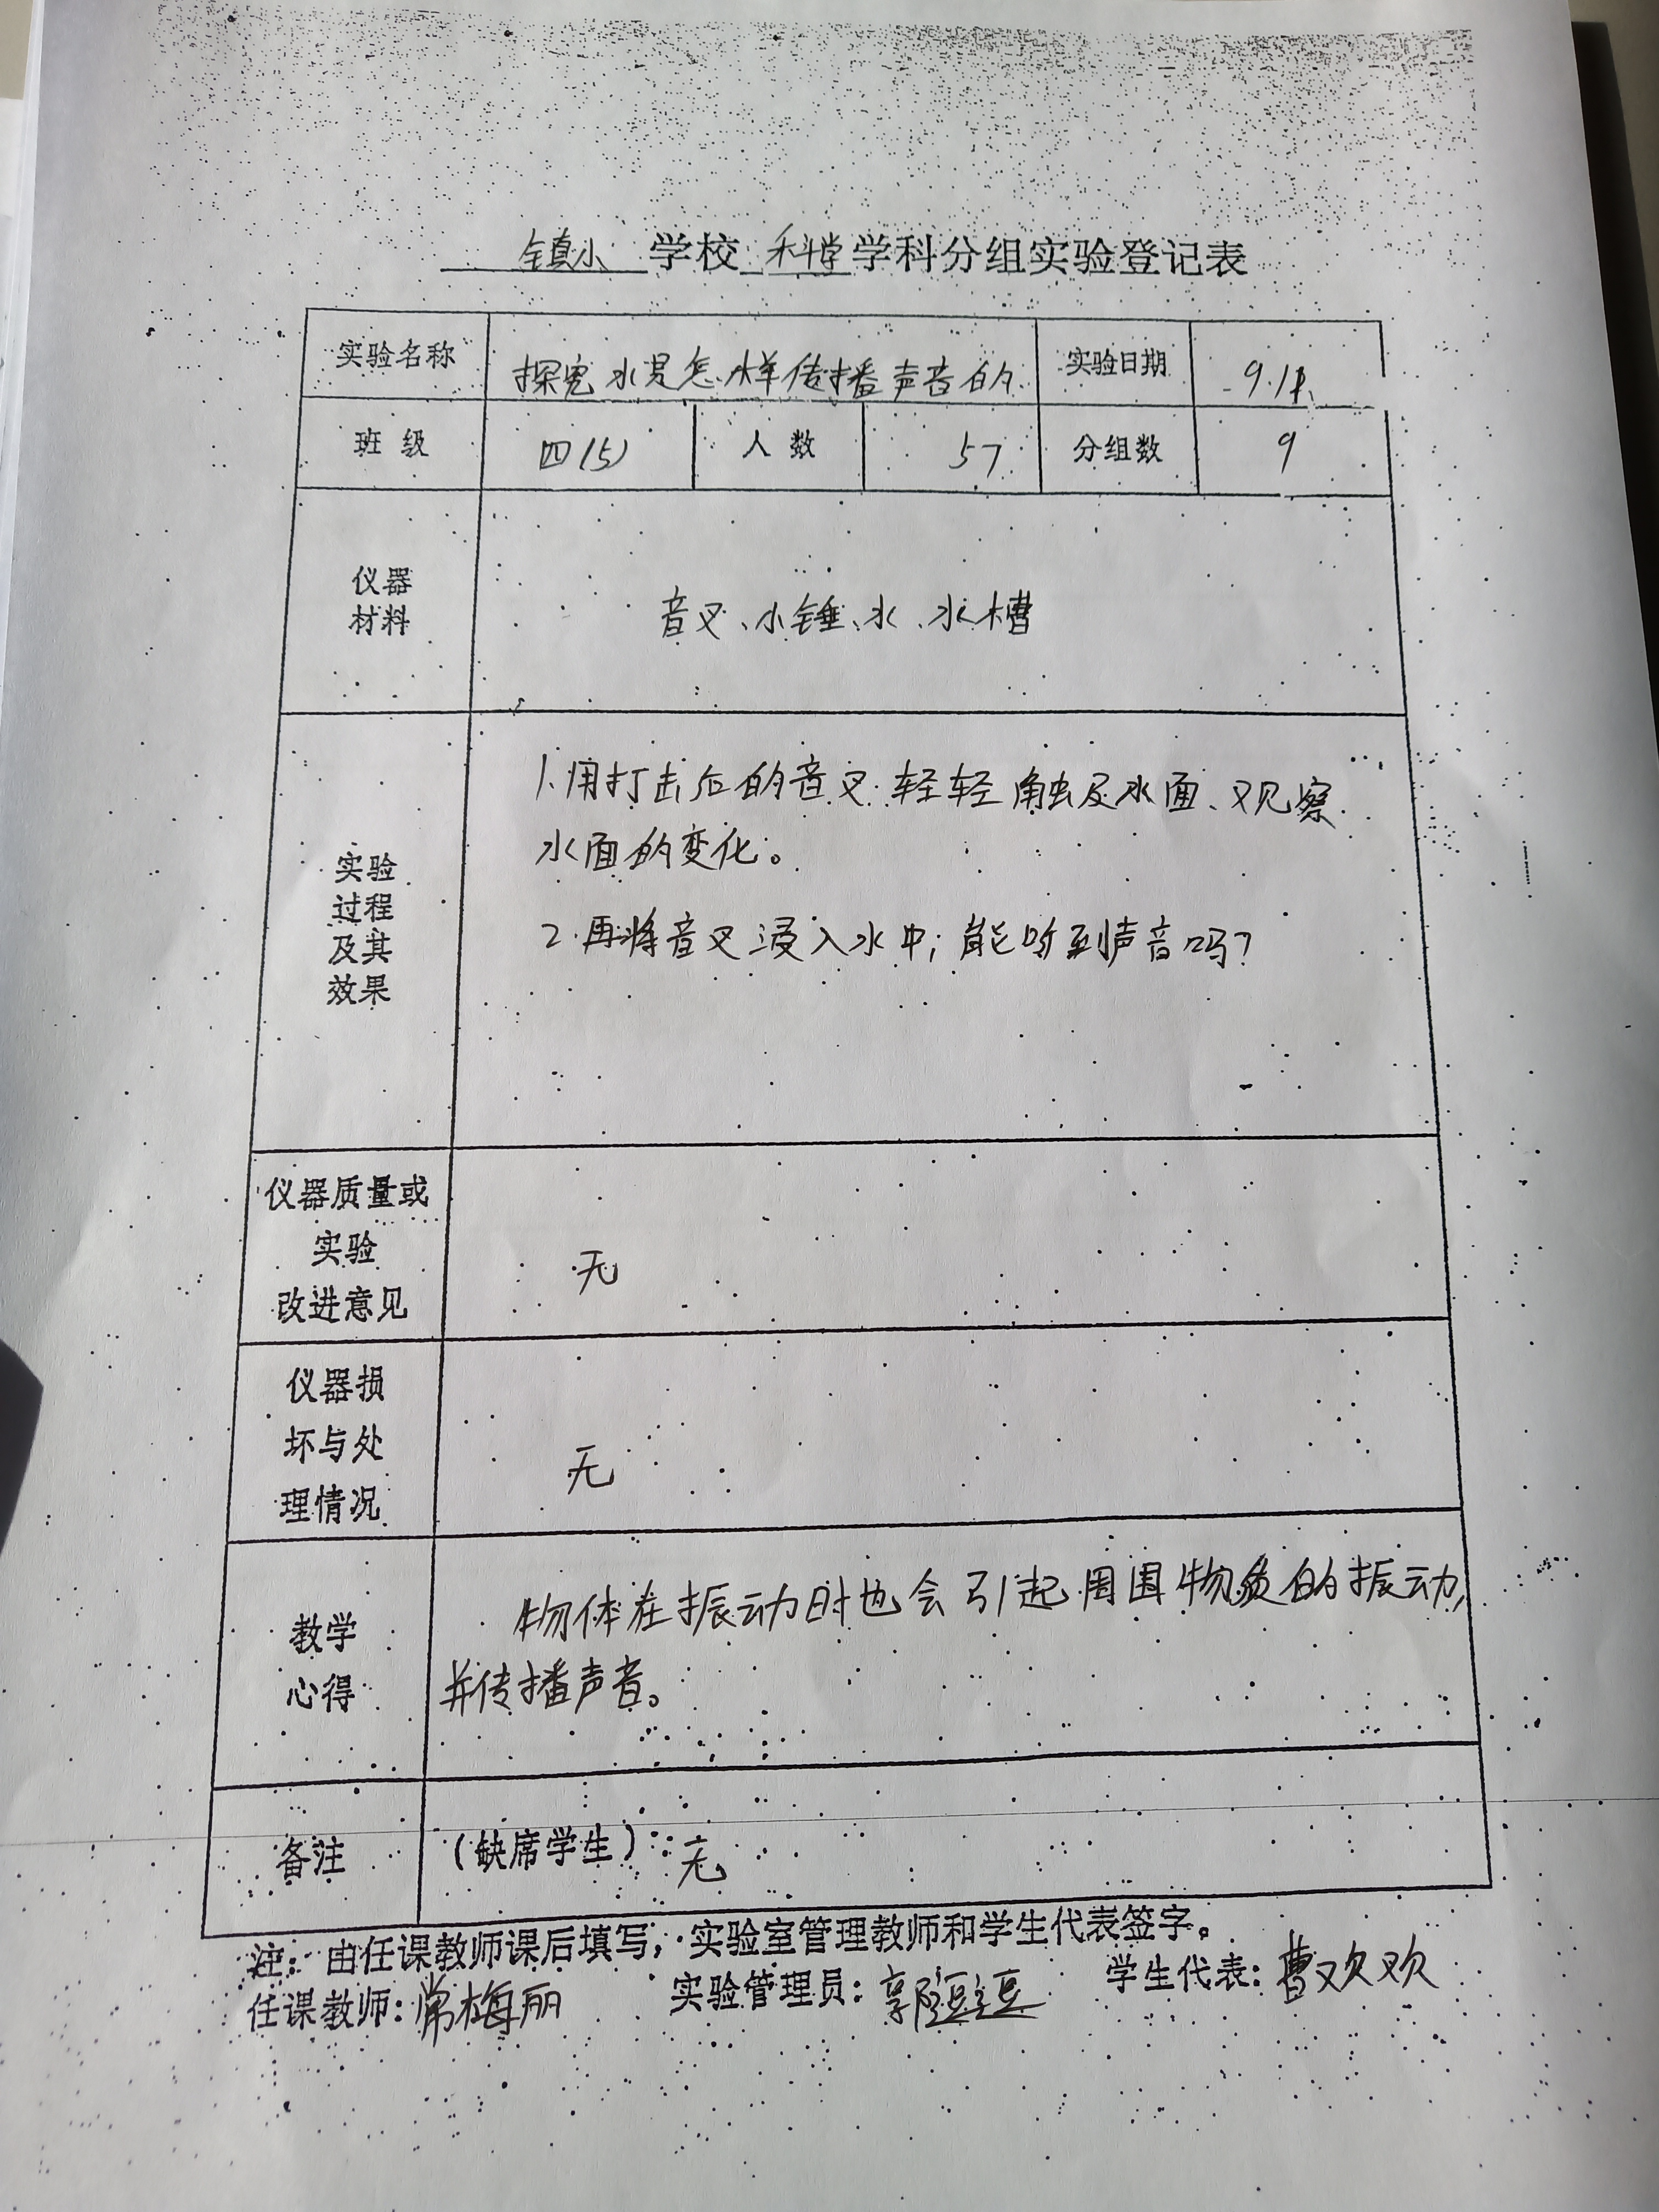 镇小 学校 科学 学科分组实验登记表
实验名称 探究水是怎样传播声音的 实验日期
班级 四(5) 人数 57 分组数 9
仪器
材料
音叉、小锤、水、水槽
1.用打击后的音叉轻轻触及水面、观察
水面的变化。
2.再将音叉浸入水中,能听到声音吗?
实验
过程
及其
效果
仪器质量或
实验
改进意见
无
仪器损
坏与处
理情况
无
物体在振动时也会引起周围物质的振动,
并传播声音。
教学
心得
备注 (缺席学生): 无
注:由任课教师课后填写,实验室管理教师和学生代表签字。
任课教师:常梅丽 实验管理员: 学生代表:曹欢欢